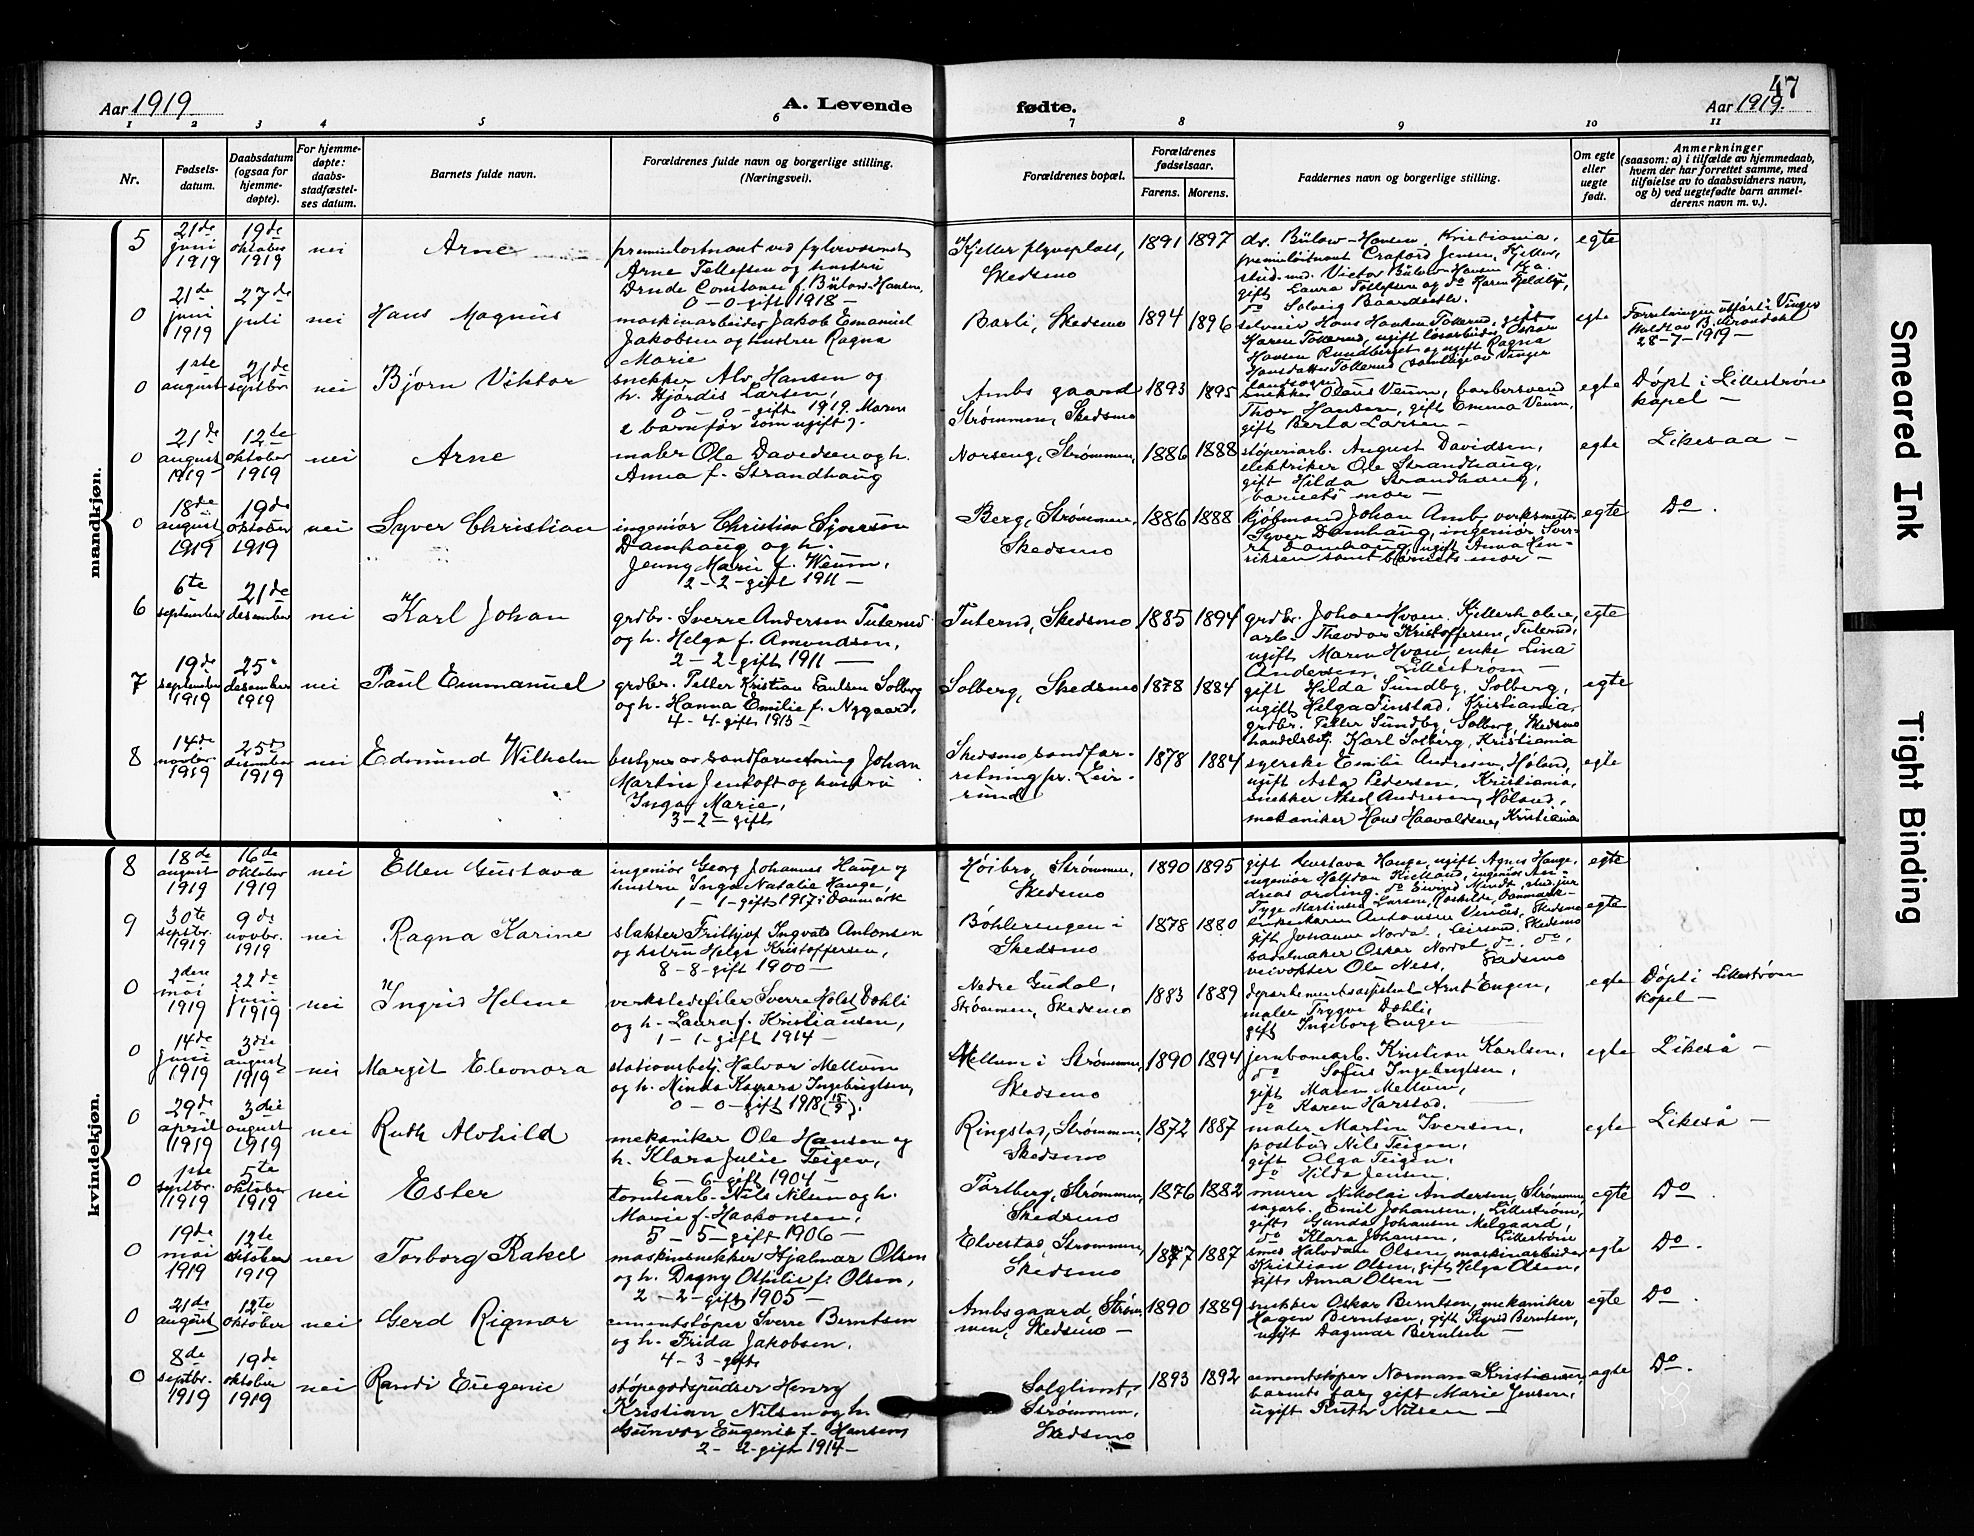 47
Aar 1919.
A. Levende
fødte.
Aar 1919.
1 2 3 4 5 6 7 8 9 10 11
Nr.
Fødsels-
datum.
Daabsdatum
(ogsaa for
hjemme-
døpte).
For hjemme-
døpte:
daabs-
stadfæstel-
ses datum.
Barnets fulde navn.
Forældrenes fulde navn og borgerlige stilling.
(Næringsvei).
Forældrenes bopæl.
Forældrenes
fødselsaar.
Farens. Morens.
Faddernes navn og borgerlige stilling.
Om egte
eller
uegte
født.
Anmerkninger
(saasom: a) i tilfælde av hjemmedaab,
hvem der har forrettet samme, med
tilføielse av to daabsvidners navn,
og b) ved uegtefødte barn anmel-
derens navn m. v.).
mandkjøn.
5
21de
juni
1919
19de
oktober
1919
nei
Arne
Arne Tellefsen og hustru
Drude Constance f. Bülow-Hansen,
0-0-gift 1918-
Kjeller flyveplass,
Skedsmo
1891 1897
dr. Bülow-Hansen, Kristiania,
premierløitnant Craford Jensen, Kjeller,
stud. med. Victor Bülow-Hansen
gift Laura Tellefsen og do Karen Feldby,
do Solveig
egte
0
21de
juni
1919
27de
juli
nei
Hans Magnus
maskinarbeider Jakob Emanuel
Jakobsen og hustru Ragna
Marie
Barli, Skedsmo
1894 1896
selveier Hans Hansen Tollerud, gift
Karen Tollerud, ugift løsarbeider Oskar
Hansen Rundberget og ugift Ragna
Hansdatter Tollerud (samtlige av Vinger
landsogn)
egte
Forretningen utført i Vinger
28-7-1919-
0
1ste
august
21de
septbr.
nei
Bjørn Viktor
snekker Alv Hansen og
h. Hjørdis Larsen,
0-0-gift 1919. Moren
2 barn før som ugift).
Ambs gaard
Strømmen, Skedsmo
1893 1895
snekker Olaus Veum, barbersvend
Thor Hansen, gift Emma Veum,
gift Berta Larsen-
egte
Døpt i Lillestrøm
kapel-
0
21de
august
1919
12te
oktober
1919
nei
Arne
maler Ole Davidsen og h.
Anna f. Strandhaug
Norseng, Strømmen,
1886 1888
støperiarb. August Davidsen,
elektriker Ole Strandhaug,
gift Hilda Strandhaug,
barnets mor-
egte
Likesaa-
0
18de
august
1919
19de
oktober
1919
nei
Syver Christian
ingeniør Christian Syverson
Damhaug og h.
Jenny Marie f. Weum,
2-2-gift 1911-
Berg, Strømmen,
Skedsmo
1886 1888
kjøbmand Johan Amb, verksmester
Syver Damhaug, ingeniør Sver-
re Damhaug, ugift Anna Hen-
riksen samt barnets mor-
egte
Do.
6
6te
september
21de
desember
nei
Karl Johan
grdbr. Sverre Andersen Tuterud
og h. Helga f. Amundsen,
2-2-gift 1911-
Tuterud, Skedsmo
1885 1894
grdbr. Johan Hvam, Kjellerholen,
arb. Theodor Kristoffersen, Tuterud,
ugift Maren Hvam, enke Lina
Andersen, Lillestrøm-
egte
7
19de
september
1919
25de
desember
1919
nei
Paul Emmanuel
grdbr. Petter Kristian Paulsen Solberg
og h. Hanna Emilie f. Nygaard,
4-4-gift 1913-
Solberg, Skedsmo
1878 1884
gift Hilda Sundby, Solberg,
ugift Helga Finstad, Kristiania,
grdbr. Petter Sundby, Solberg, Skedsmo
handelsbetj. Karl Solberg, Kristiania
egte
8
14de
novbr.
1919
25de
desember
1919
nei
Edmund Wilhelm
bestyrer av sandforretning Johan
Martin Jentoft og hustru
Inga Marie,
3-2-gift
Skedsmo sandfor-
retning pr. Leir-
sund
1878 1884
syerske Emilie Andresen, Høland,
ugift Asta Pedersen, Kristiania,
snekker Aksel Andresen, Høland,
mekaniker Hans Haavaldsen, Kristiania
egte
kvindekjøn.
8
18de
august
1919
16de
oktober
1919
nei
Ellen Gustava
ingeniør Georg Johannes Hauge og
hustru Inga Natalie Hauge,
1-1-gift 1917 i Danmark
Høibro, Strømmen,
Skedsmo
1890 1895
gift Gustava Hauge, ugift Agnes Hauge,
ingeniør Halfdan Kielland, ingeniør An-
dreas Ording, do Eivind Mindt, stud. jur
Tyge Martinus Larsen, Roskilde, Danmark-
egte
9
30te
septbr.
1919
9de
novbr.
1919
nei
Ragna Karine
slakter Frithjof Ingvald Antonsen
og hustru Helga Kristoffersen,
8-8-gift 1900-
Böhlerengen i
Skedsmo
1878 1880
enke Karen Antonsen Venaas, Skedsmo
gift Johanne Nordal, Leirsund, Skedsmo
sadelmaker Oskar Nordal, do, do,
veivokter Ole Ness, Skedsmo
egte
0
2den
mai
1919
22de
juni
1919
nei
Ingrid Helene
verkstedfiler Sverre Holst Døhli
og h. Laura f. Kristiansen,
1-1-gift 1914-
Nedre Gudal,
Strømmen, Skedsmo
1883 1889
departementsassistent Arnt Engen,
maler Trygve Døhli,
gift Ingeborg Engen
egte
Døpt i Lillestrøm
kapel-
0
14de
juni
1919
3die
august
1919
nei
Margit Eleonora
stationsbetj. Halvor Mellum
og h. Minda Kaspara Ingebrigtsen,
0-0-gift 1918 (15/9).
Mellum i Strømmen,
Skedsmo
1890 1894
jernbanearb. Kristian Karlsen,
do Sofus Ingebrigtsen,
gift Maren Mellum,
do Karen Harstad.
egte
Likeså-
0
29de
april
1919
3die
august
1919
nei
Ruth Alvhild
mekaniker Ole Hansen og
h. Klara Julie Teigen,
6-6-gift 1904-
Ringstad, Strømmen,
Skedsmo
1872 1887
maler Martin Iversen,
postbud Nils Teigen,
gift Olga Teigen,
do Hilda Jensen.
egte
Likeså-
0
1ste
septbr.
1919
5te
oktober
1919
nei
Ester
tomtearb. Nils Nilsen og h.
Marie f. Haakonsen,
5-5-gift 1906-
Torsberg, Strømmen,
Skedsmo
1876 1882
murer Nikolai Andersen, Strømmen,
sagarb. Emil Johansen, Lillestrøm,
gift Gunda Johansen Melgaard,
do Klara Johansen, Lillestrøm
egte
Do.
0
19de
mai
1919
12te
oktober
1919
nei
Torborg Rakel
maskinsnekker Hjalmar Olsen
og h. Dagny Othilie f. Olsen,
2-2-gift 1905-
Elvestad, Strømmen,
Skedsmo
1877 1887
smed Halvdan Olsen, maskinarbeider
Kristian Olsen, gift Helga Olsen,
gift Anna Olsen-
egte
Do.
0
21de
august
12te
oktober
nei
Gerd Rigmor
cementstøper Sverre Berntsen
og h. Frida Jakobsen.
4-3-gift
Ambsgaard, Strøm-
men, Skedsmo-
1890 1889
snekker Oskar Berntsen, mekaniker
Hagen Berntsen, gift Sigrid Berntsen,
ugift Dagmar Berntsen-
egte
Do.
0
8de
septbr.
1919
19de
oktober
1919
nei
Randi Eugenie
støpegodspudser Henry
Kristian Nilsen og h.
Gunvor Eugenie f. Hansen,
2-2-gift 1914-
Solglimt,
Strømmen,
Skedsmo
1893 1892
cementstøper Norman Kristiansen,
barnets far, gift Marie Jensen,
ugift Ruth Nilsen-
egte
Do.
Smeared Ink
Tight Binding